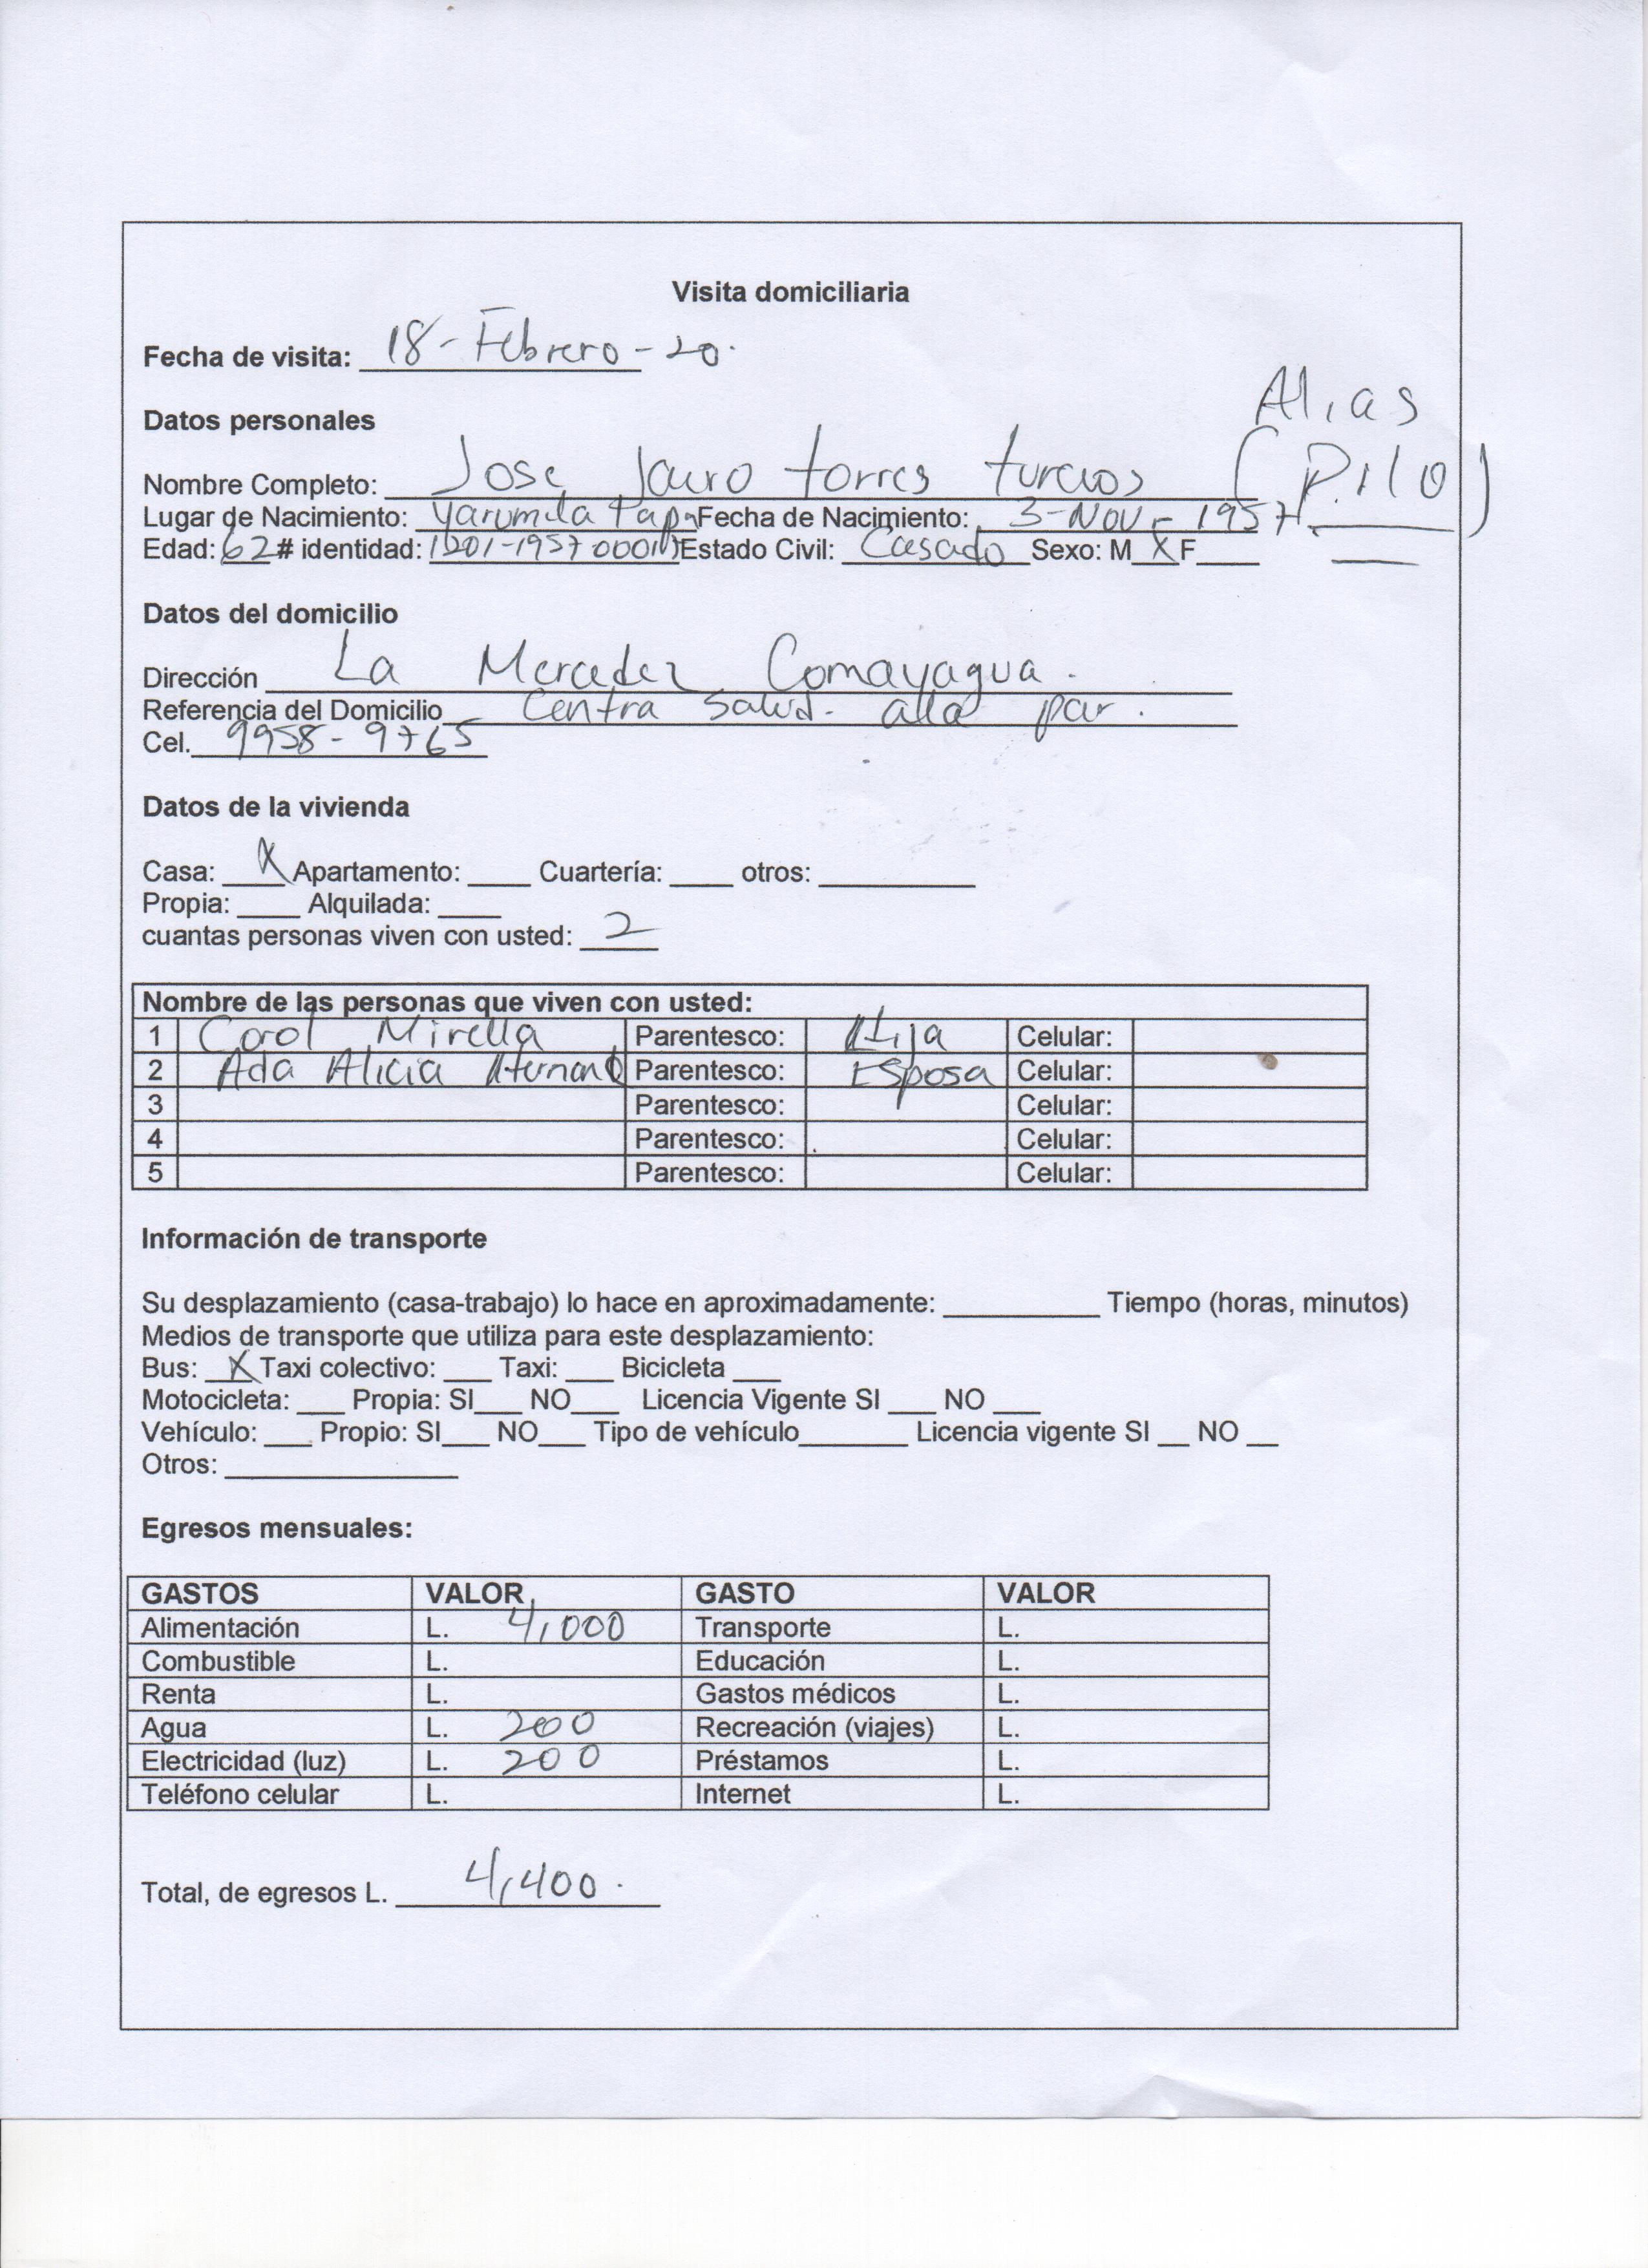 Visita domiciliaria
Fecha de visita: 18-Febrero-20.
Datos personales
Alias
Nombre Completo: Jose Jairo torres turcios (Pilo)
Lugar de Nacimiento: Yarumela Fecha de Nacimiento: 3-Nov-1957
Edad: 62 # identidad: Estado Civil: Casado Sexo: M X F
Datos del domicilio
Dirección La Mercedez Comayagua.
Referencia del Domicilio Centra Salud. alla par.
Cel. 9958-9765
Datos de la vivienda
Casa: X Apartamento: ____ Cuartería: ____ otros: __________
Propia: ____ Alquilada: ____
cuantas personas viven con usted: 2
Nombre de las personas que viven con usted:
1 Carol Mirella Parentesco: Hija Celular:
2 Ada Alicia Parentesco: Esposa Celular:
3 Parentesco: Celular:
4 Parentesco: Celular:
5 Parentesco: Celular:
Información de transporte
Su desplazamiento (casa-trabajo) lo hace en aproximadamente: __________ Tiempo (horas, minutos)
Medios de transporte que utiliza para este desplazamiento:
Bus: X Taxi colectivo: ___ Taxi: ___ Bicicleta ___
Motocicleta: ___ Propia: SI___ NO___ Licencia Vigente SI ___ NO ___
Vehículo: ___ Propio: SI___ NO___ Tipo de vehículo_______ Licencia vigente SI __ NO __
Otros: _______________
Egresos mensuales:
GASTOS VALOR GASTO VALOR
Alimentación L. 4,000 Transporte L.
Combustible L. Educación L.
Renta L. Gastos médicos L.
Agua L. 200 Recreación (viajes) L.
Electricidad (luz) L. 200 Préstamos L.
Teléfono celular L. Internet L.
Total, de egresos L. 4,400.